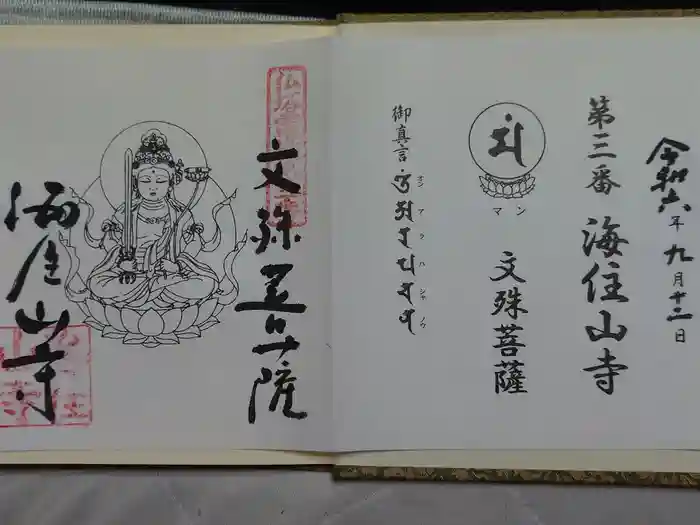 令和六年九月十二日
第三番 海住山寺
マン
文殊菩薩
御真言
オン アラハシャノウ
文殊菩薩
海住山寺